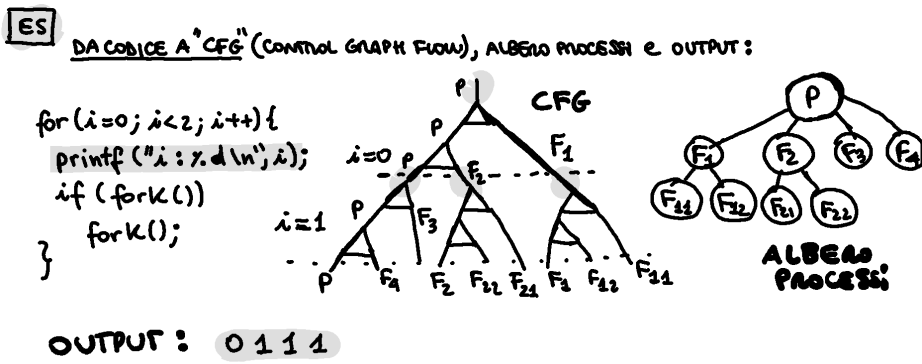 ES
DA CODICE A "CFG" (CONTROL GRAPH FLOW), ALBERO PROCESSI e OUTPUT:
for (i=0; i<2; i++) {
printf ("i : %d \n", i);
if (fork())
fork();
}
P
CFG
P
F1
i=0
P
F2
i=1
P
F3
P F4 F2 F22 F21 F1 F12 F11
P
F1 F2 F3 F4
F11 F12 F21 F22
ALBERO
PROCESSI
OUTPUT : 0 1 1 1